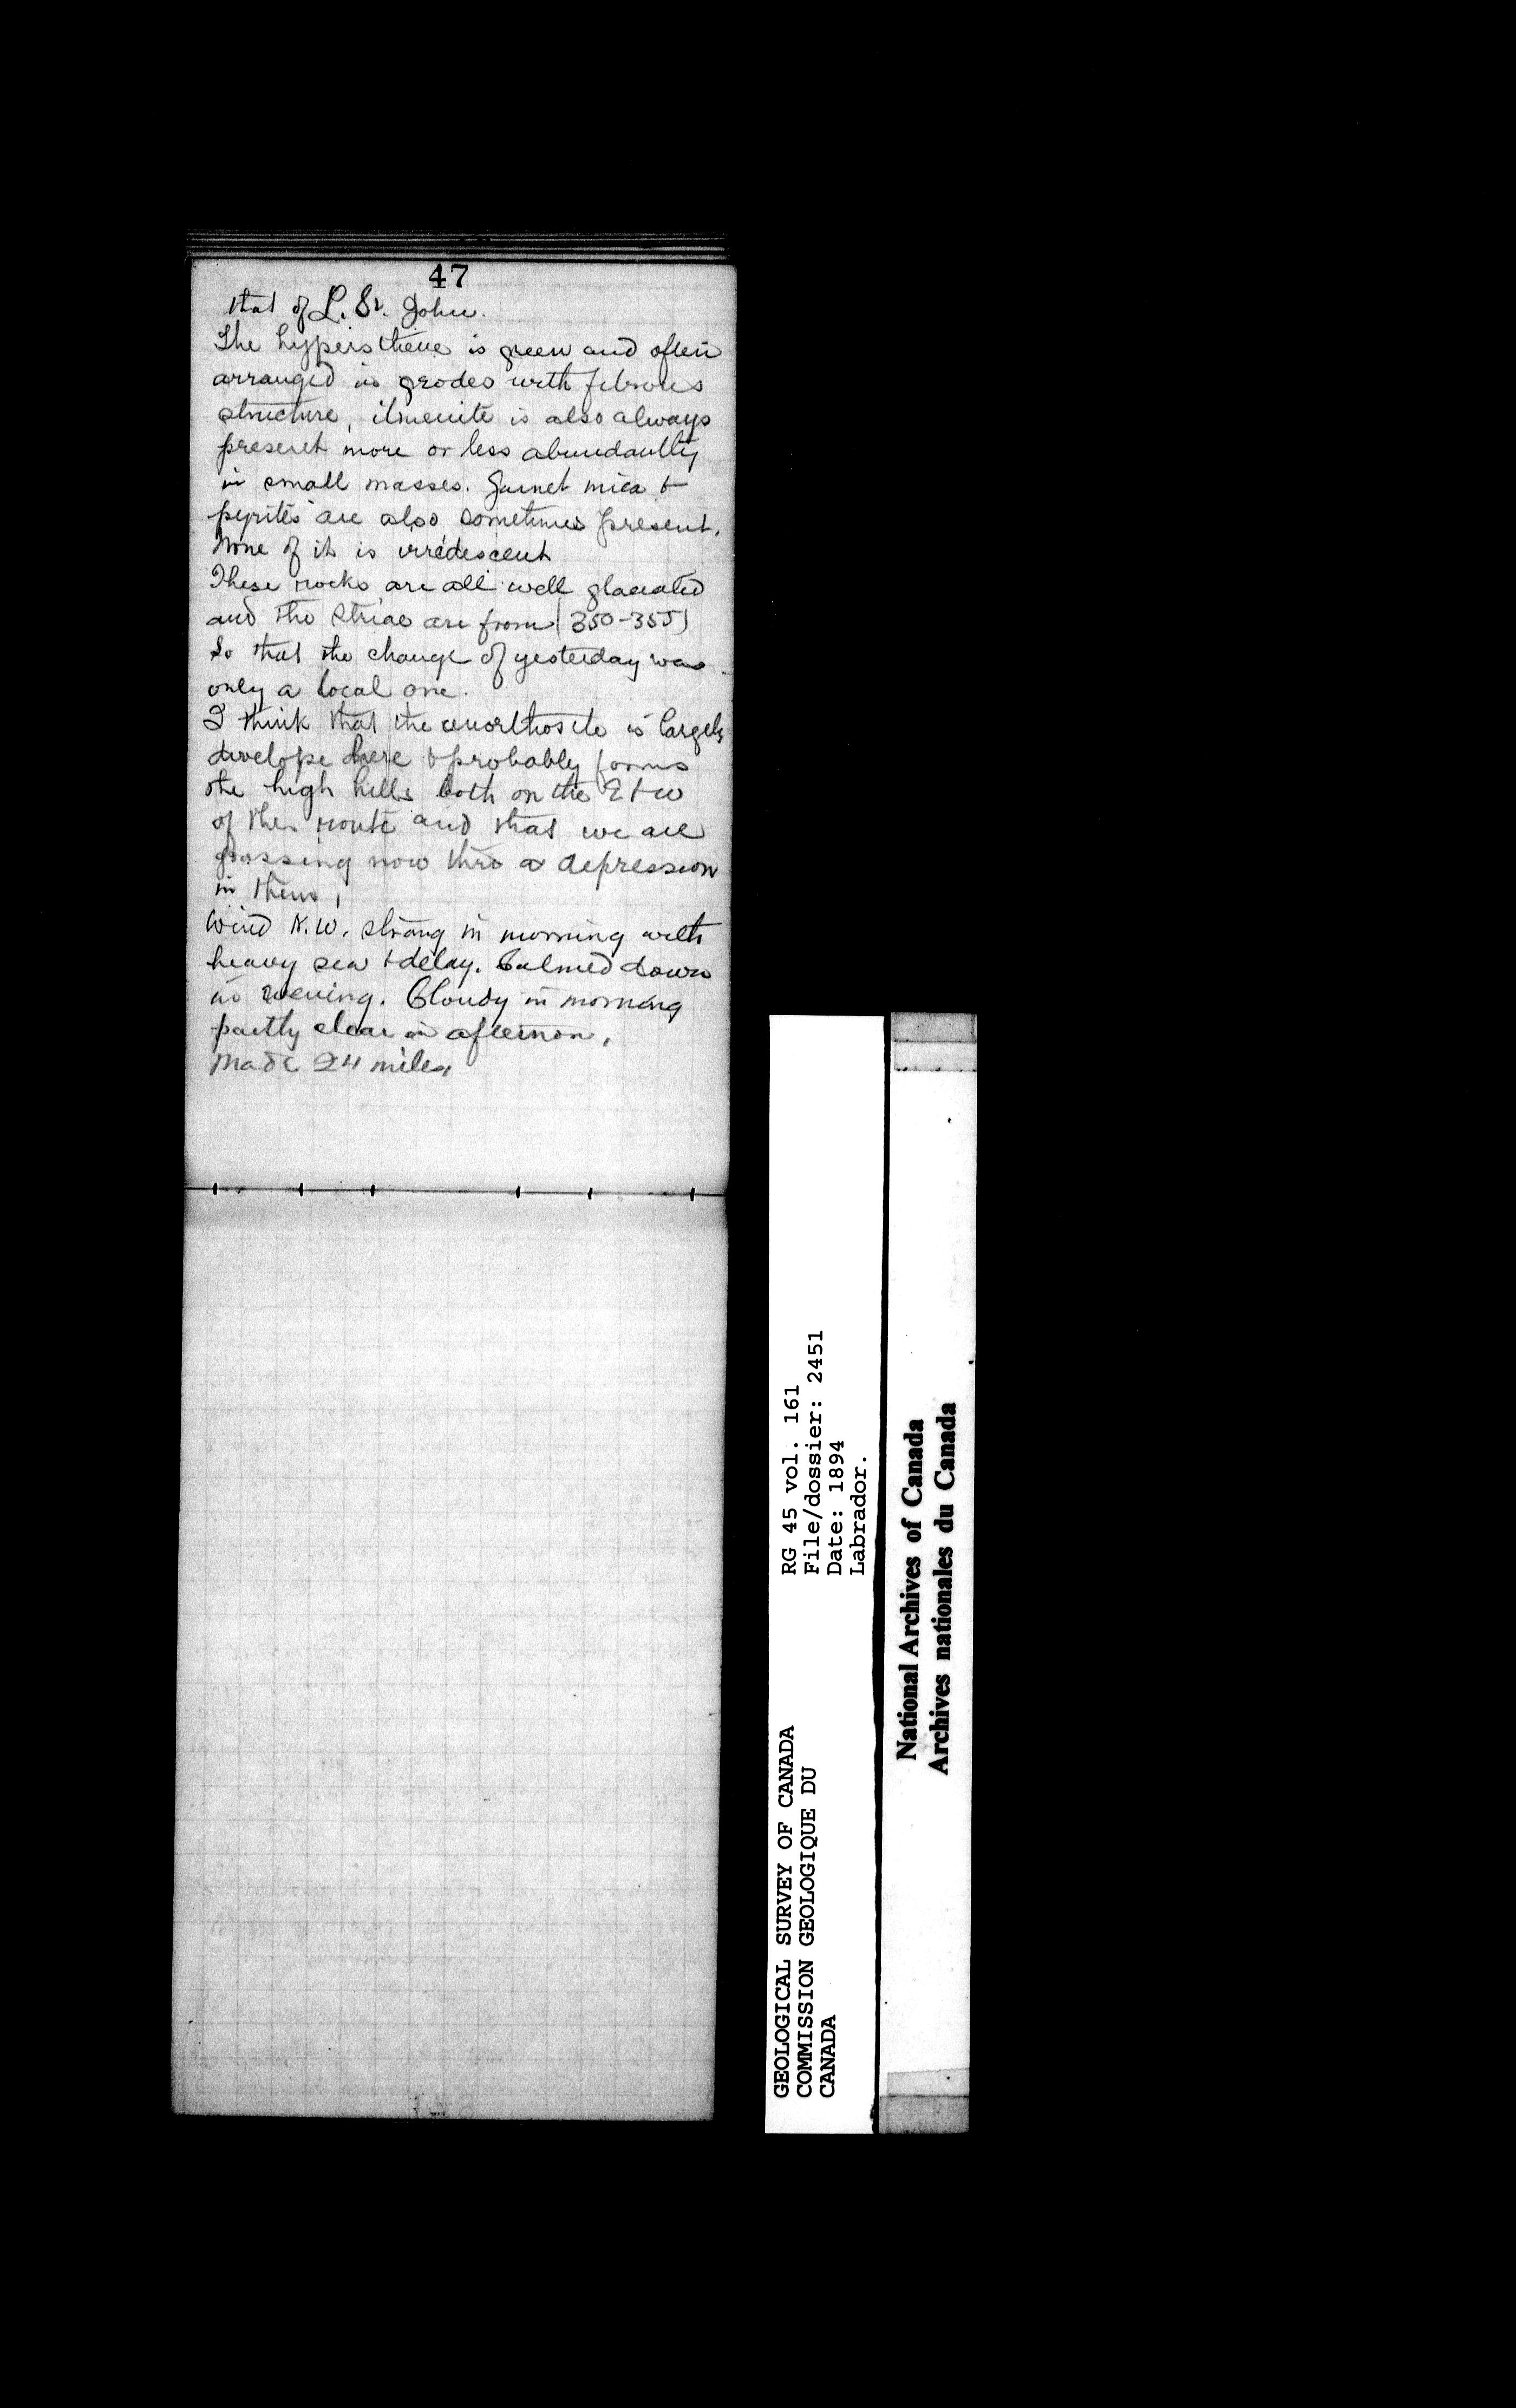 47
that of L. St. John.
The hypersthene is green and often
arranged in geodes with fibrous
structure, ilmenite is also always
present more or less abundantly
in small masses. Garnet mica &
pyrites are also sometimes present.
None of it is irredescent
These rocks are all well glaciated
and the striae are from (350-355)
So that the change of yesterday was
only a local one.
I think that the anorthosite is largely
develope here & probably forms
the high hills both on the E & W
of the route and that we are
passing now thro a depression
in them,
Wind N.W. strong in morning with
heavy sea & delay. Calmed down
in evening. Cloudy in morning
partly clear in afternon.
Made 24 miles,
RG 45 vol. 161
File/dossier: 2451
Date: 1894
Labrador.
GEOLOGICAL SURVEY OF CANADA
COMMISSION GEOLOGIQUE DU
CANADA
National Archives of Canada
Archives nationales du Canada